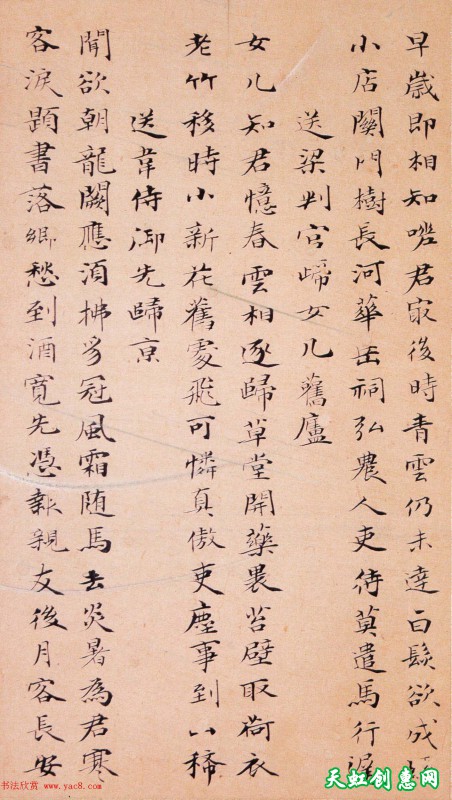 早歲即相知嗟君最後時青雲仍未達白髮欲成絲
小店關門樹長河華岳祠弘農人吏待莫遣馬行遲
送梁判官歸女几舊廬
女几知君憶春雲相逐歸草堂開藥裹苔壁取荷衣
老竹移時小新花舊處飛可憐真傲吏塵事到山稀
送韋侍御先歸京
聞欲朝龍闕應須拂豸冠風霜随馬去炎暑為君寒
客淚題書落鄉愁到酒寬先憑報親友後月客長安
书法欣赏 www.yac8.com
天虹创惠网